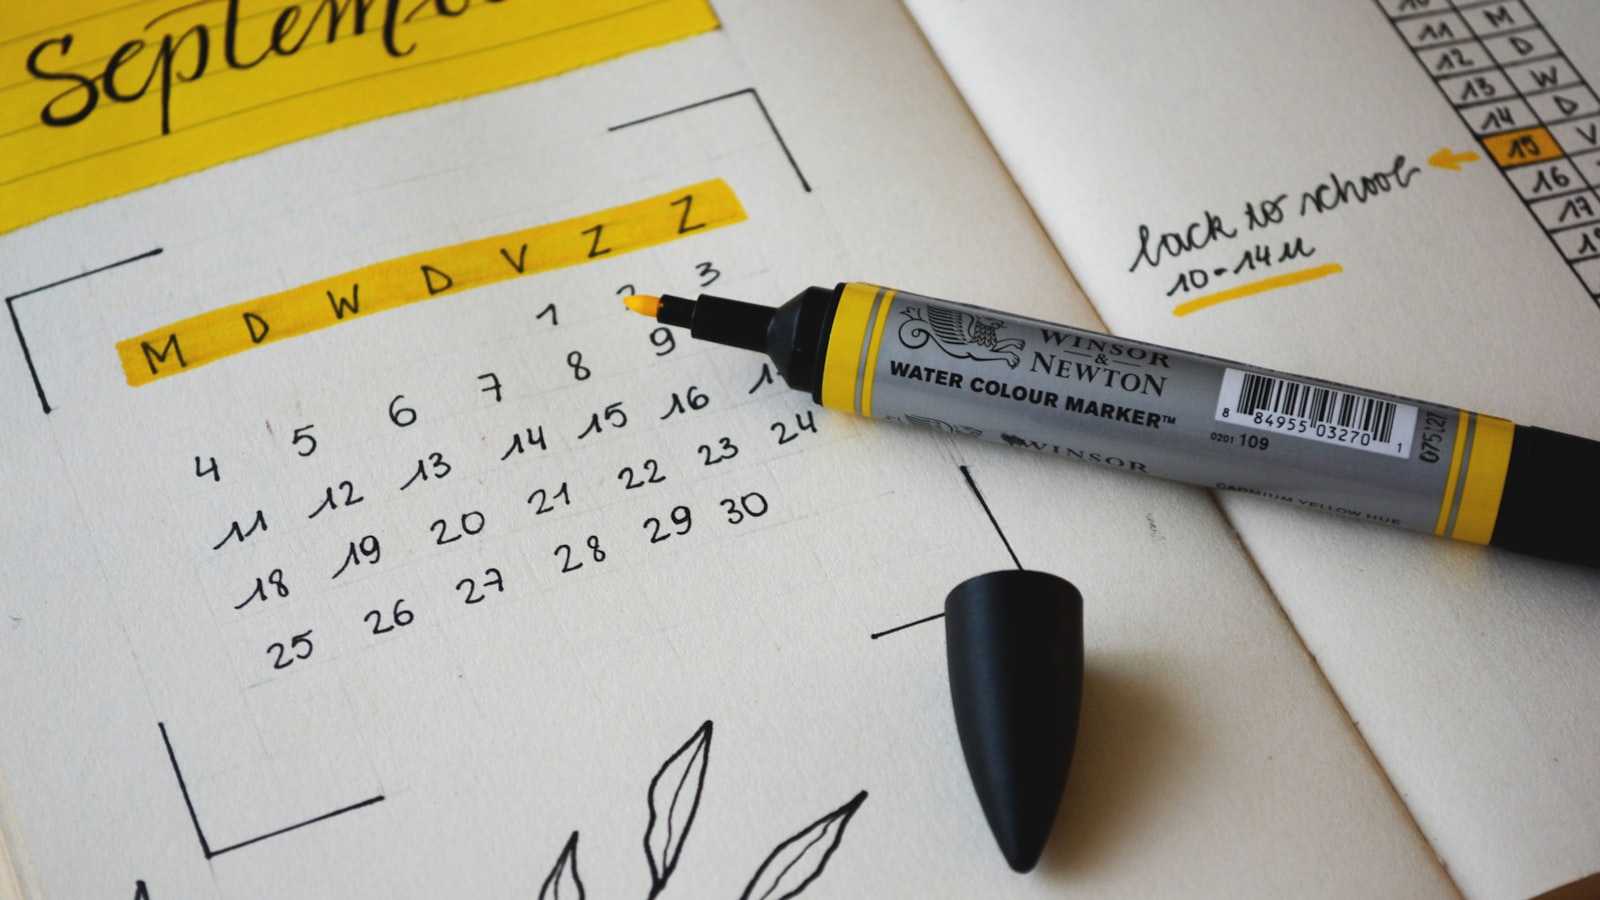 Septem
M D W D V Z Z
1 2 3
4 5 6 7 8 9
11 12 13 14 15 16 17
18 19 20 21 22 23 24
25 26 27 28 29 30
back to school
10-14u
11 M
12 D
13 W
14 D
15 V
16
17
WINSOR
&
NEWTON
WATER COLOUR MARKER™
8 84955 03270 1
0201 109
075127
WINSOR
CADMIUM YELLOW HUE